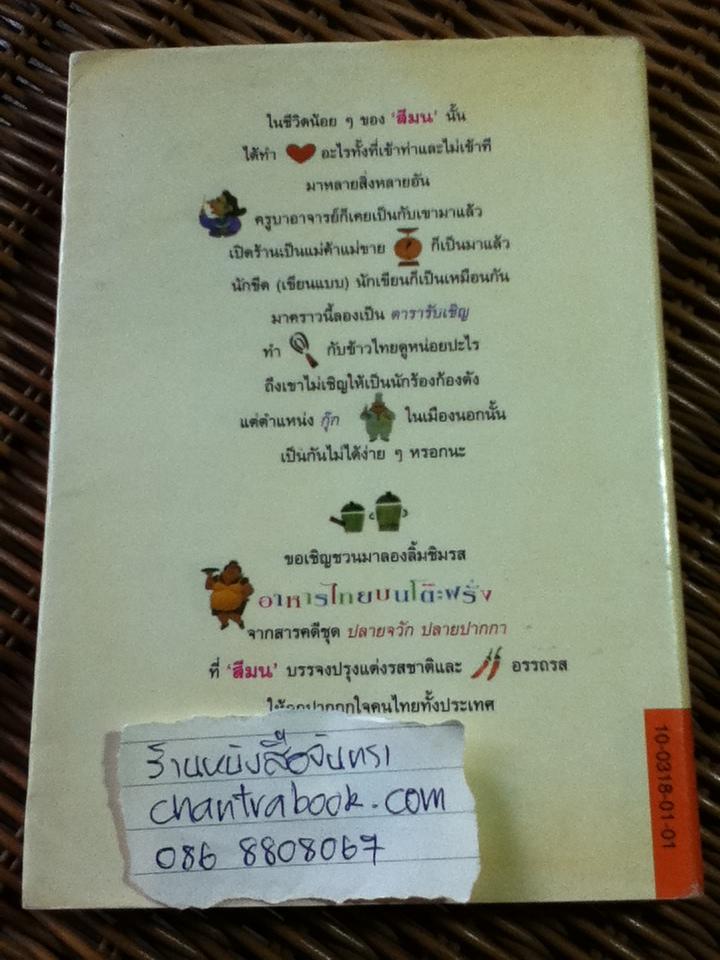 ในชีวิตน้อย ๆ ของ 'สีมน' นั้น
ได้ทำ อะไรทั้งที่เข้าท่าและไม่เข้าที
มาหลายสิ่งหลายอัน
ครูบาอาจารย์ก็เคยเป็นกับเขามาแล้ว
เปิดร้านเป็นแม่ค้าแม่ขาย ก็เป็นมาแล้ว
นักขีด (เขียนแบบ) นักเขียนก็เป็นเหมือนกัน
มาคราวนี้ลองเป็น ดารารับเชิญ
ทำ กับข้าวไทยดูหน่อยปะไร
ถึงเขาไม่เชิญให้เป็นนักร้องก้องดัง
แต่ตำแหน่ง กุ๊ก ในเมืองนอกนั้น
เป็นกันไม่ได้ง่าย ๆ หรอกนะ
ขอเชิญชวนมาลองลิ้มชิมรส
อาหารไทยบนโต๊ะฝรั่ง
จากสารคดีชุด ปลายจวัก ปลายปากกา
ที่ 'สีมน' บรรจงปรุงแต่งรสชาติและ อรรถรส
ให้ถูกปากถูกใจคนไทยทั้งประเทศ
ร้านหนังสือจันทรา
chantrabook.com
086 8808067
10-0318-01-01